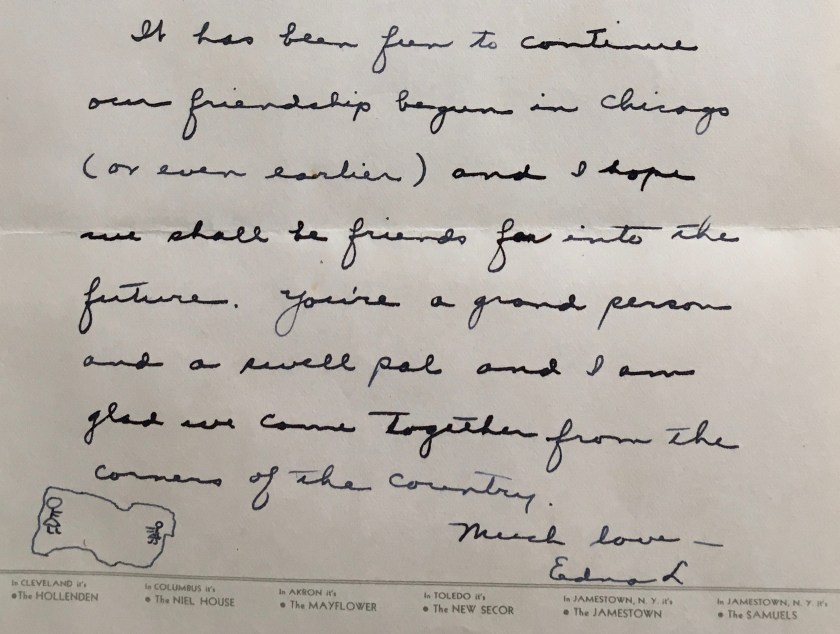 It has been fun to continue
our friendship begun in Chicago
(or even earlier) and I hope
we shall be friends far into the
future. You're a grand person
and a swell pal and I am
glad we came together from the
corners of the country.
Much love —
Edna L
In CLEVELAND it's
• The HOLLENDEN
In COLUMBUS it's
• The NIEL HOUSE
In AKRON it's
• The MAYFLOWER
In TOLEDO it's
• The NEW SECOR
In JAMESTOWN, N. Y. it's
• The JAMESTOWN
In JAMESTOWN, N. Y. it's
• The SAMUELS